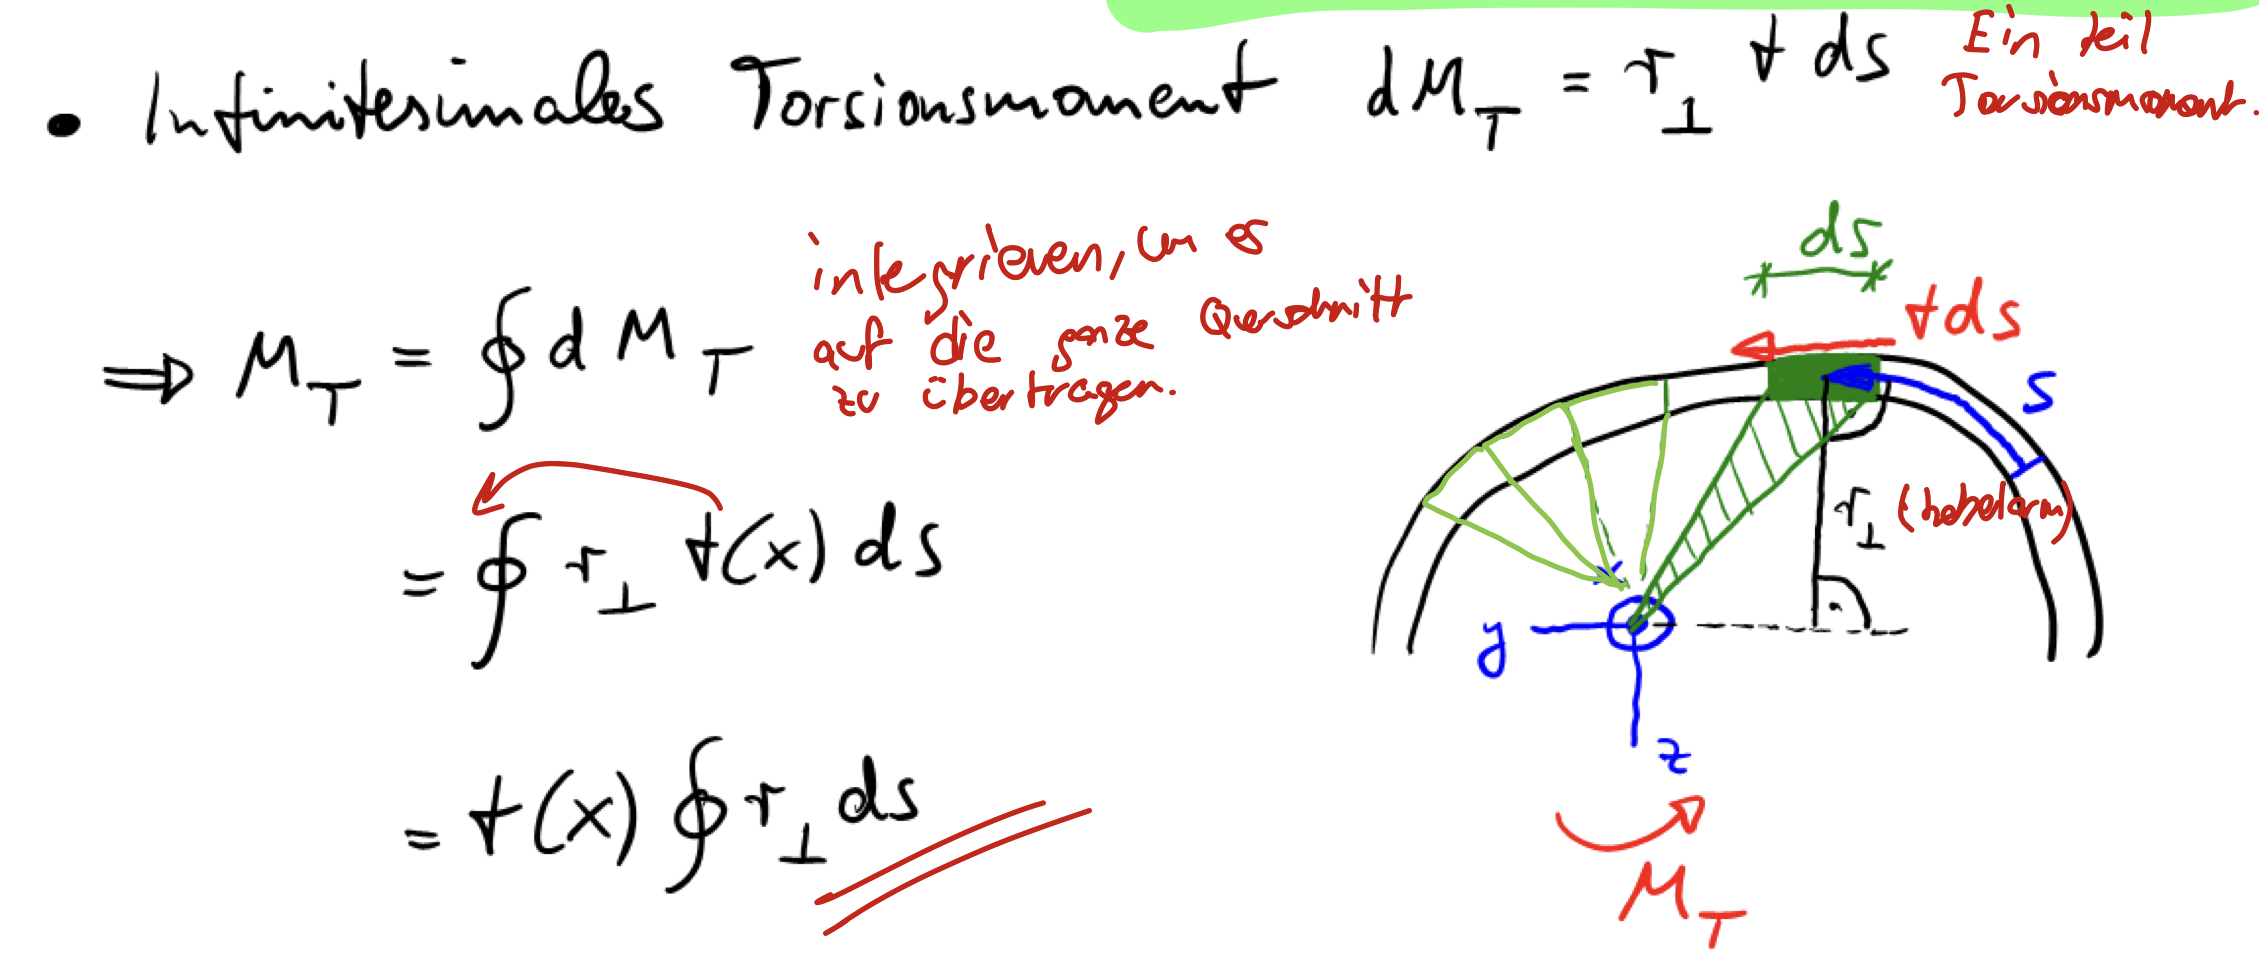 • Infinitesimales Torsionsmoment dM_T = r_⊥ t ds
Ein teil
Torsionsmoment.
⇒ M_T = ∮ d M_T
integrieren, um es
auf die ganze Querschnitt
zu übertragen.
= ∮ r_⊥ t(x) ds
= t(x) ∮ r_⊥ ds
ds
t ds
s
r_⊥ (hebelarm)
x
y
z
M_T